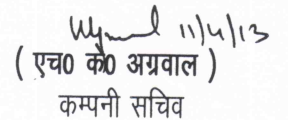 11/4/13
( एच0 के0 अग्रवाल )
कम्पनी सचिव